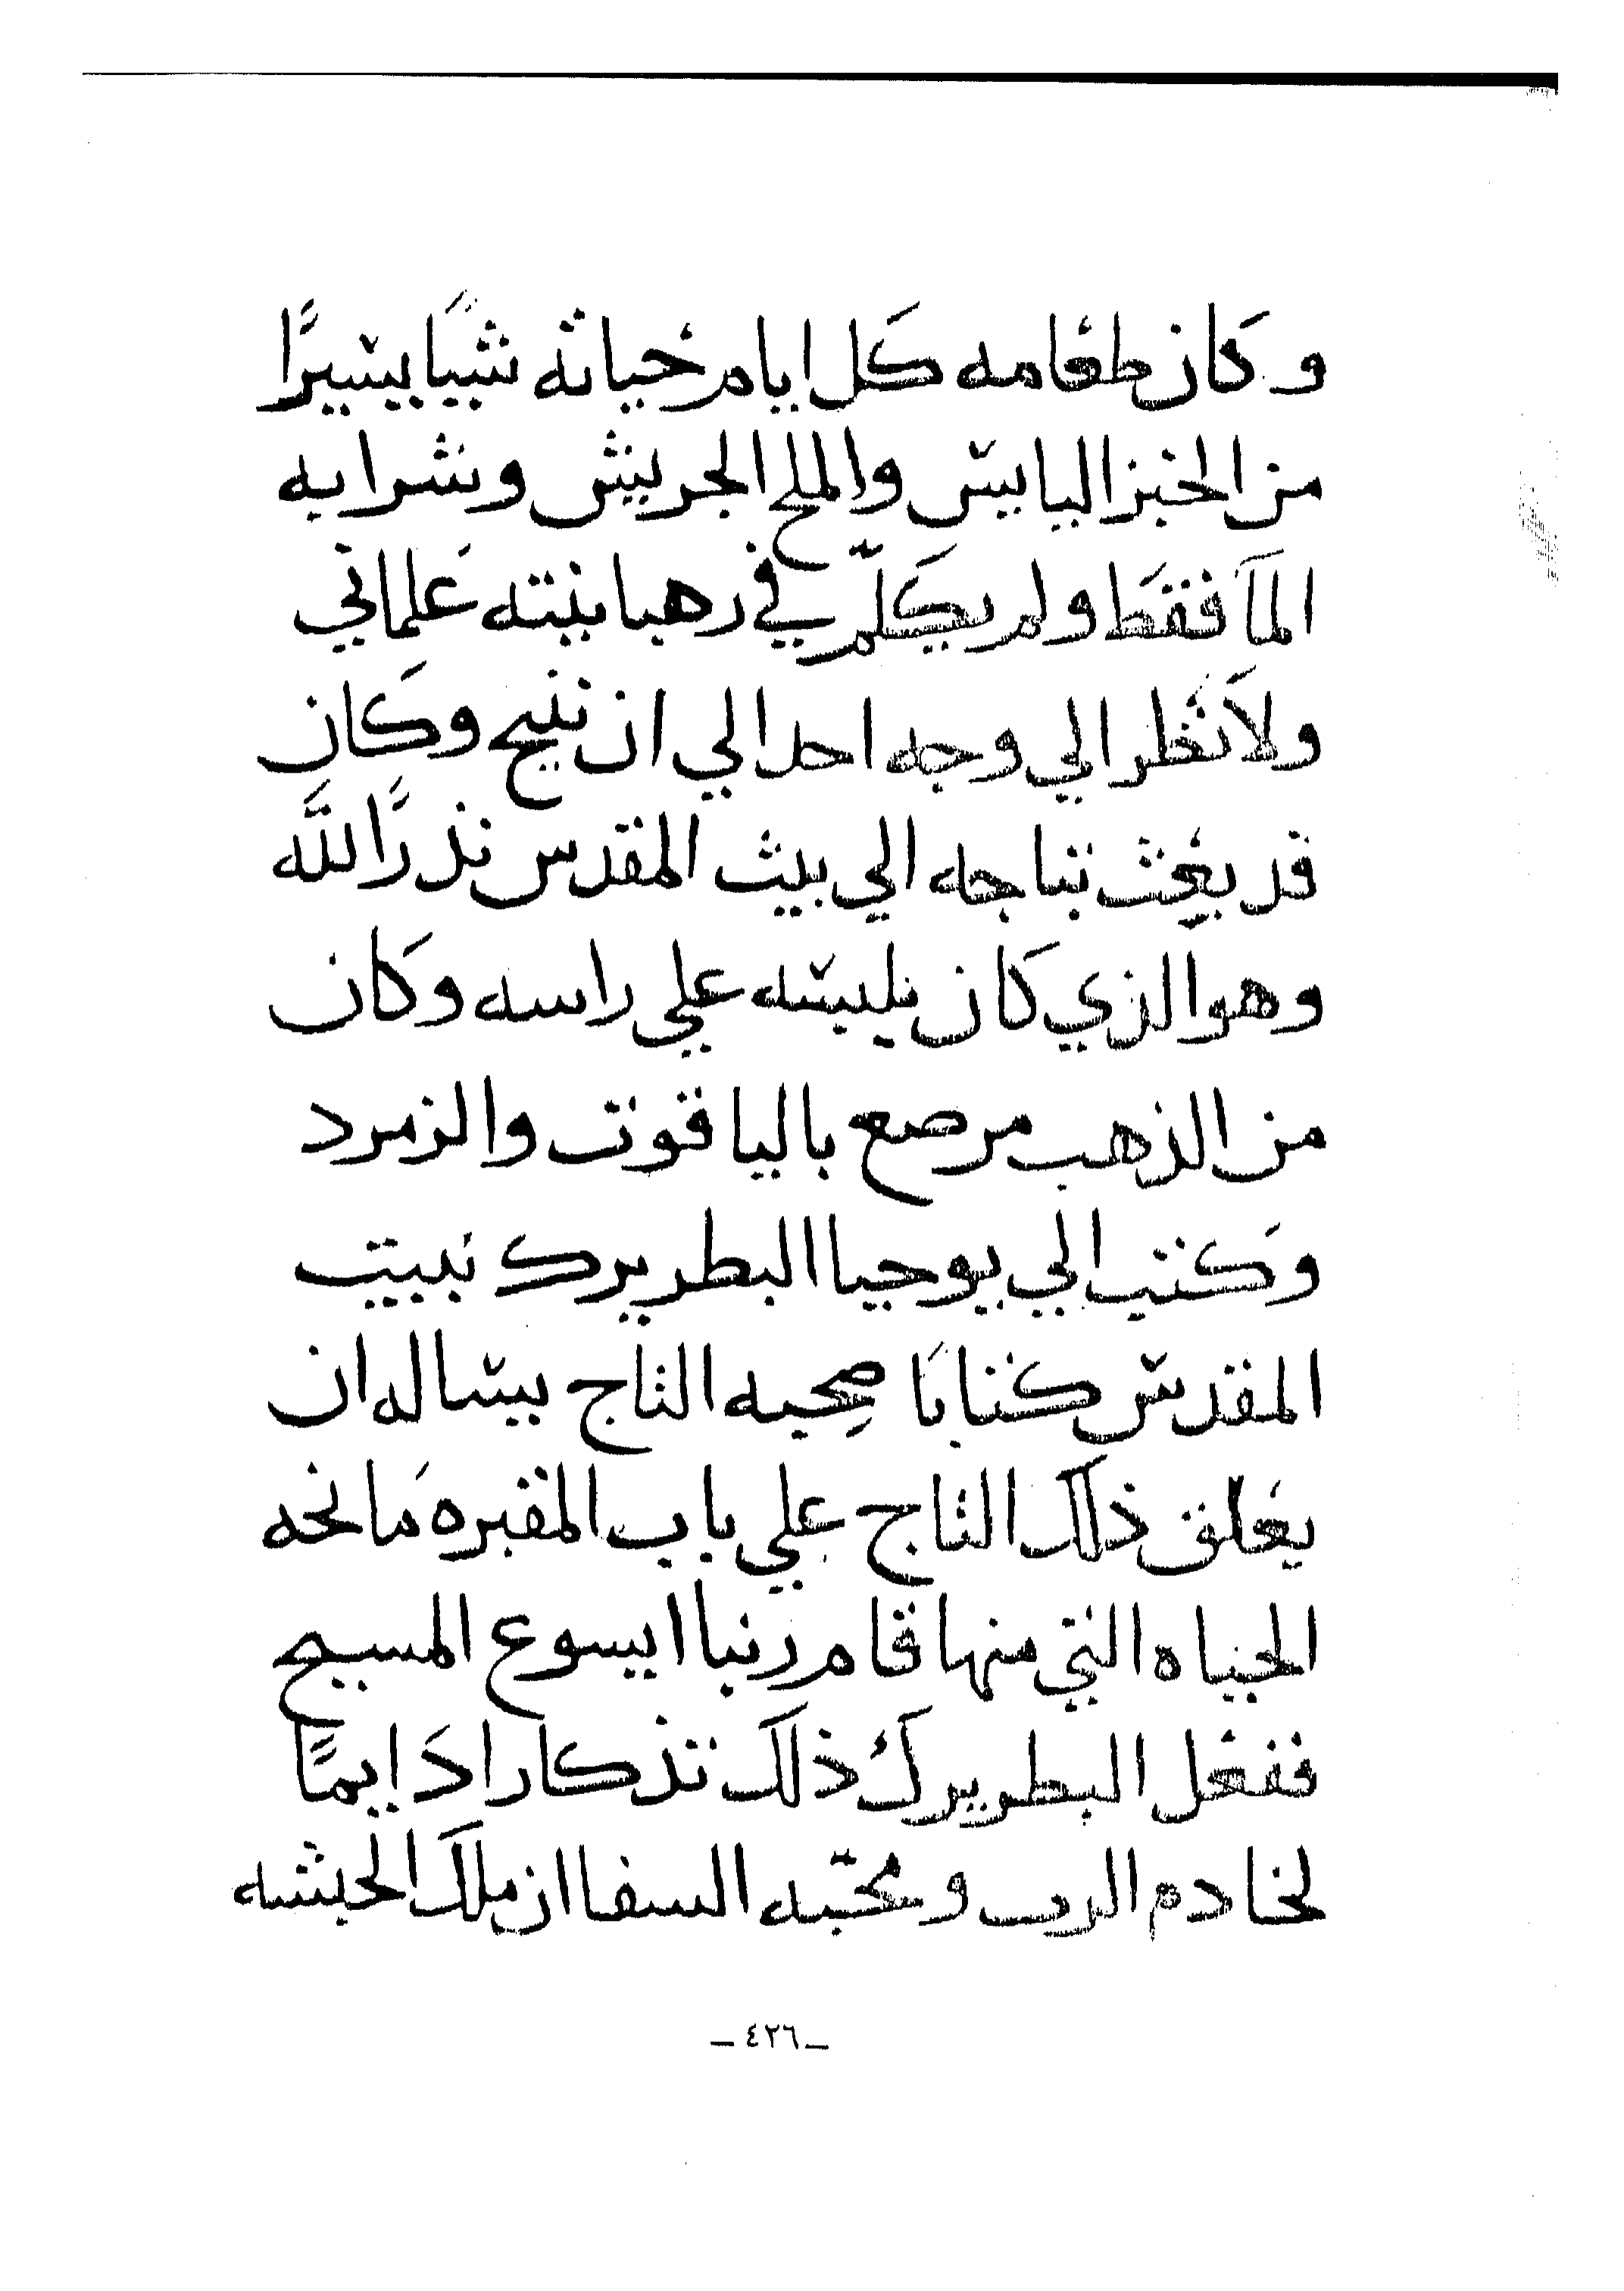 وكان طعامه كل ايام حياته شيًا يسيرًا
من الخبز اليابس والملح الجريش وشرابه
المآ فقط ولم يكلّم في رهبانيته علماني
ولا نظر الي وجه احد الي ان تنيح وكان
قد بعث بتاجه الي بيت المقدس نذرًا لله
وهو الذي كان يلبسه علي راسه وكان
من الذهب مرصع بالياقوت والزمرد
وكتب الي يوحنا البطريرك ببيت
المقدس كتابًا صحبه التاج يساله ان
يعلق ذلك التاج علي باب المقبره مانحه
الحياه التي منها قام ربنا ايسوع المسيح
ففعل البطريرك ذلك تذكارا دايمًا
لخادم الرب ومحبّه السفاان ملك الحبشه
_ ٤٢٦ _